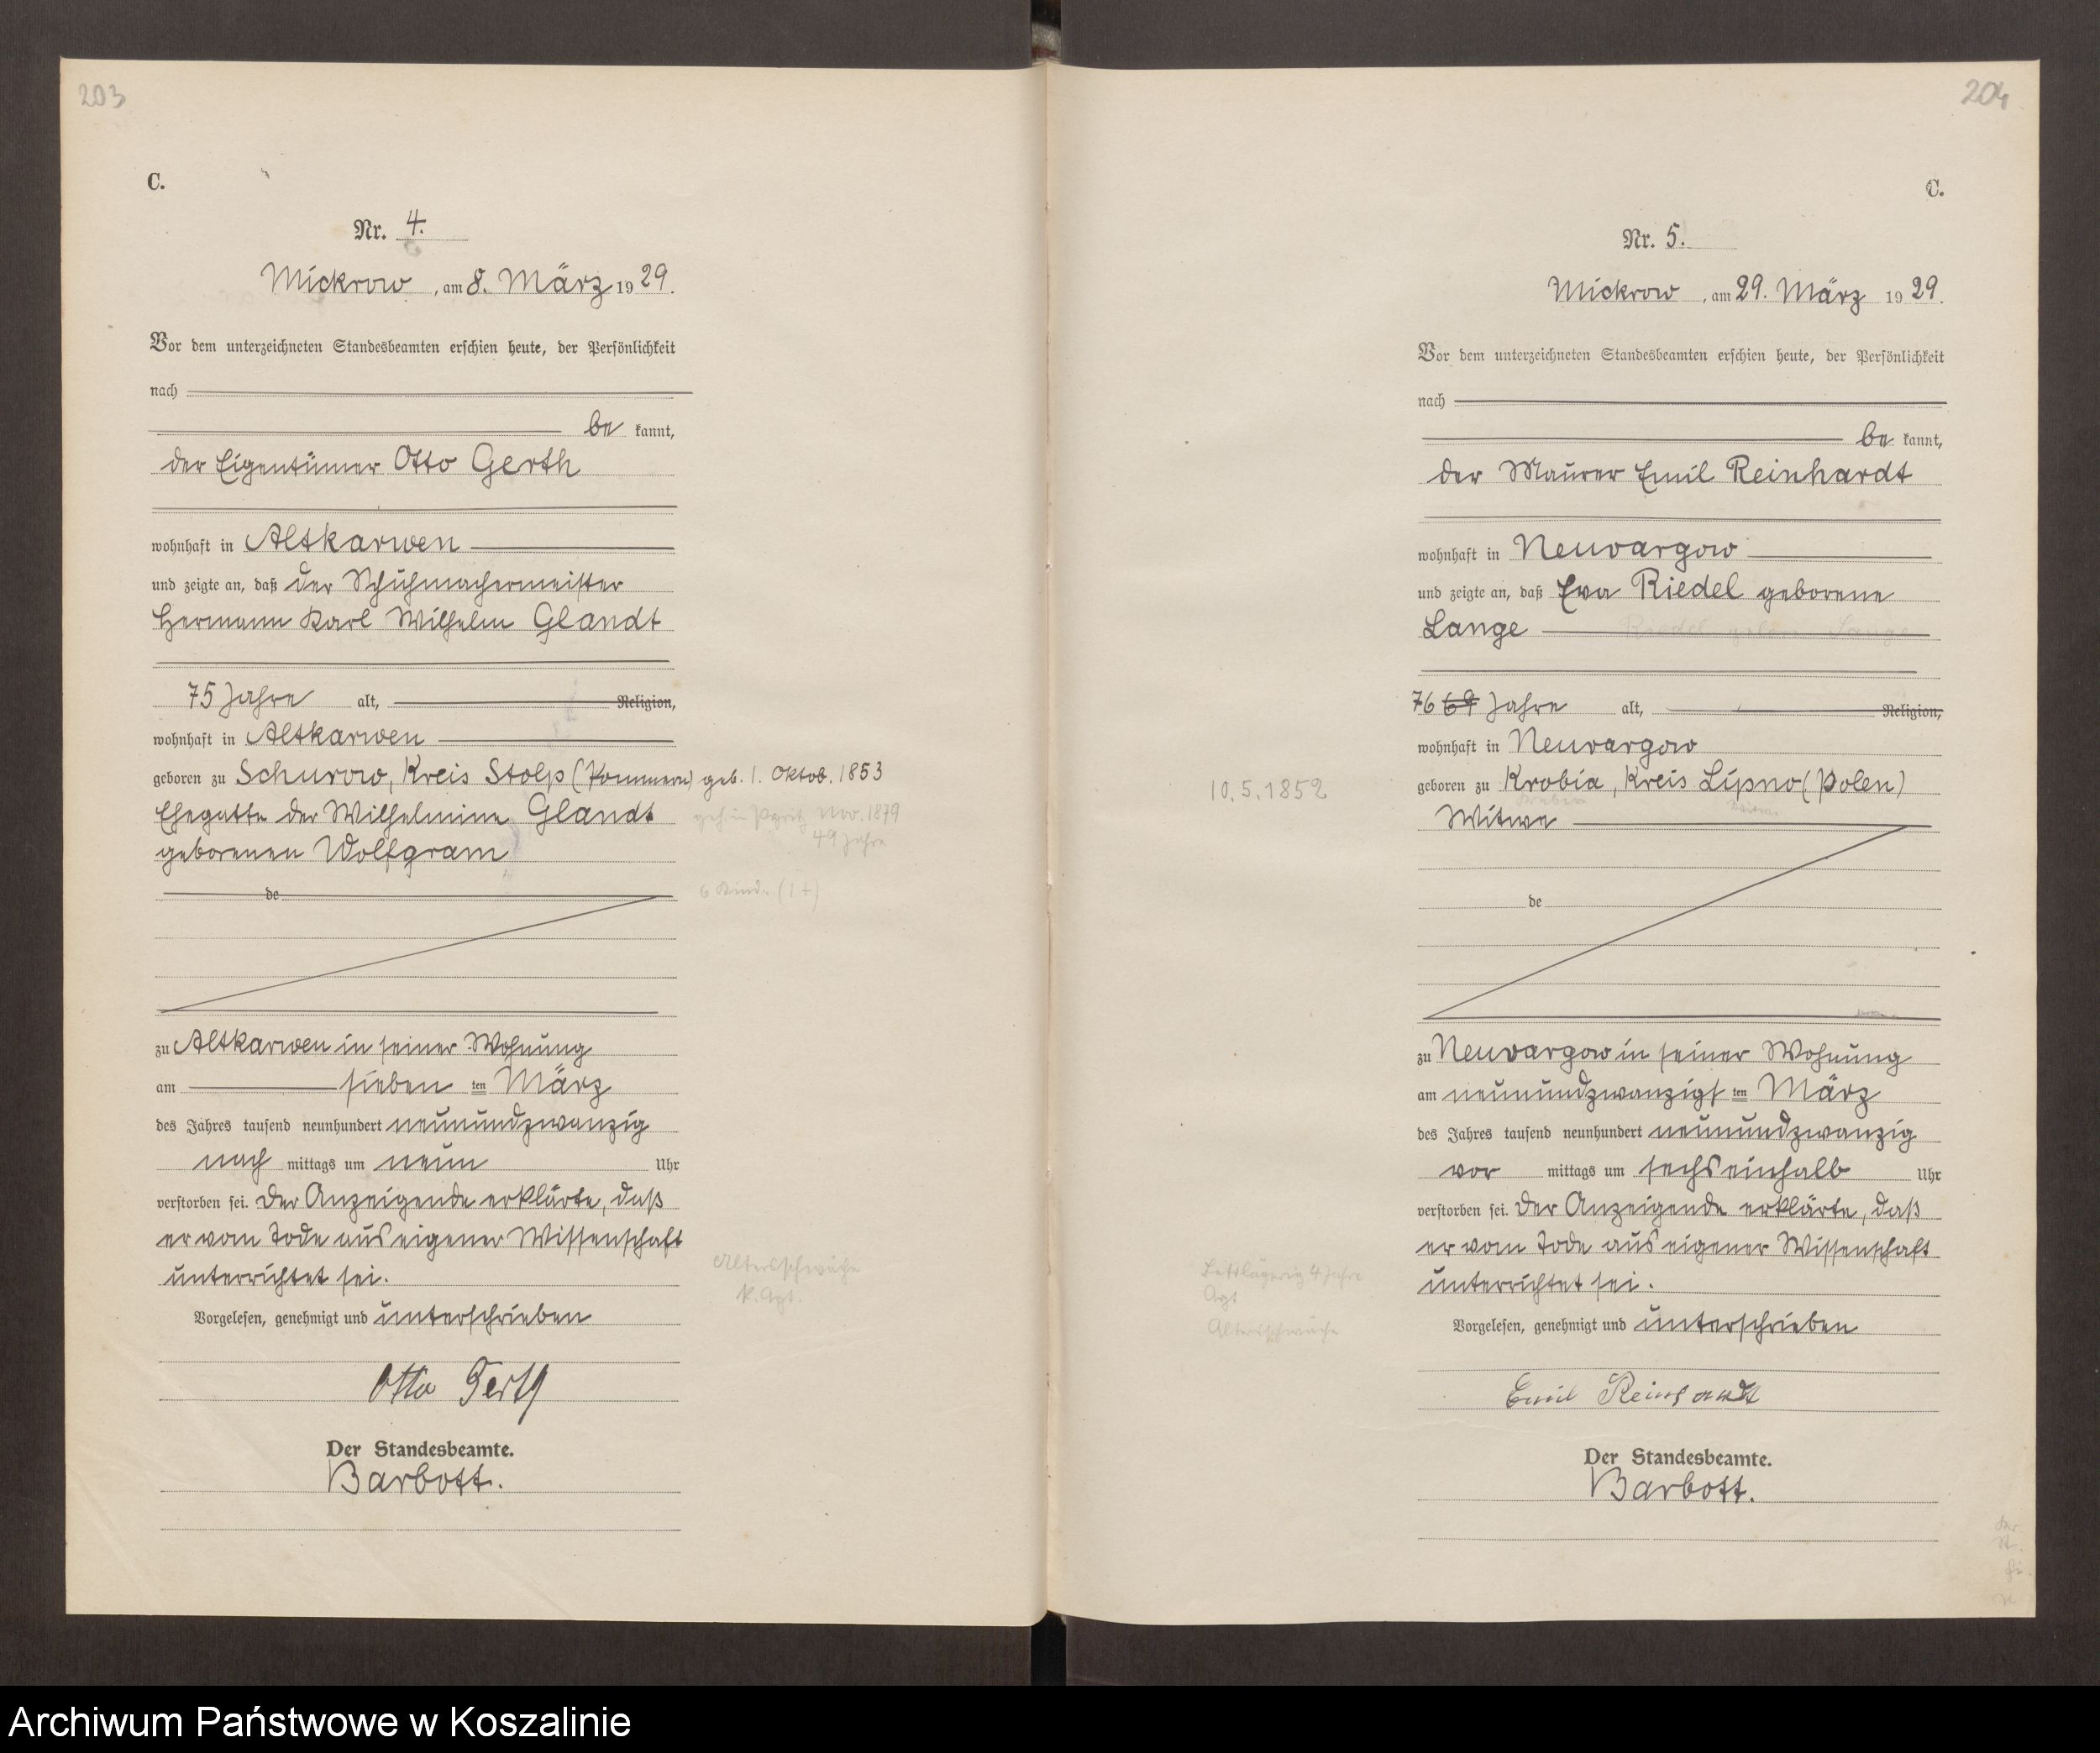 203
C.
Nr. 4.
Mickrow, am 8. März 1929.
Vor dem unterzeichneten Standesbeamten erschien heute, der Persönlichkeit
nach
be kannt,
der Eigentümer Otto Gerth
wohnhaft in Altkarwen
und zeigte an, daß der Schuhmachermeister
Hermann Karl Wilhelm Glandt
75 Jahre alt, Religion,
wohnhaft in Altkarwen
geboren zu Schurow, Kreis Stolp (Pommern) geb. 1. Oktob. 1853
Ehegatte der Wilhelmine Glandt
Nov. 1879
49 Jahre
geborenen Wolfgram
de
6 Kind. (1 +)
zu Altkarwen in seiner Wohnung
am sieben ten März
des Jahres tausend neunhundert neunundzwanzig
nach mittags um neun Uhr
verstorben sei. Der Anzeigende erklärte, daß
er vom Tode aus eigener Wissenschaft
unterrichtet sei.
Altersschwäche
k. Arzt.
Vorgelesen, genehmigt und unterschrieben
Otto Gerth
Der Standesbeamte.
Barbott.
204
C.
Nr. 5.
Mickrow, am 29. März 1929.
Vor dem unterzeichneten Standesbeamten erschien heute, der Persönlichkeit
nach
be kannt,
der Maurer Emil Reinhardt
wohnhaft in Neuvargow
und zeigte an, daß Eva Riedel geborene
Lange
76 69 Jahre alt, Religion,
wohnhaft in Neuvargow
10.5.1852
geboren zu Krobia, Kreis Lipno (Polen)
Witwe
de
zu Neuvargow in seiner Wohnung
am neunundzwanzigs ten März
des Jahres tausend neunhundert neunundzwanzig
vor mittags um sechseinhalb Uhr
verstorben sei. Der Anzeigende erklärte, daß
er vom Tode aus eigener Wissenschaft
unterrichtet sei.
Bettlägerig 4 Jahre
Arzt
Altersschwäche
Vorgelesen, genehmigt und unterschrieben
Emil Reinhardt
Der Standesbeamte.
Barbott.
Archiwum Państwowe w Koszalinie